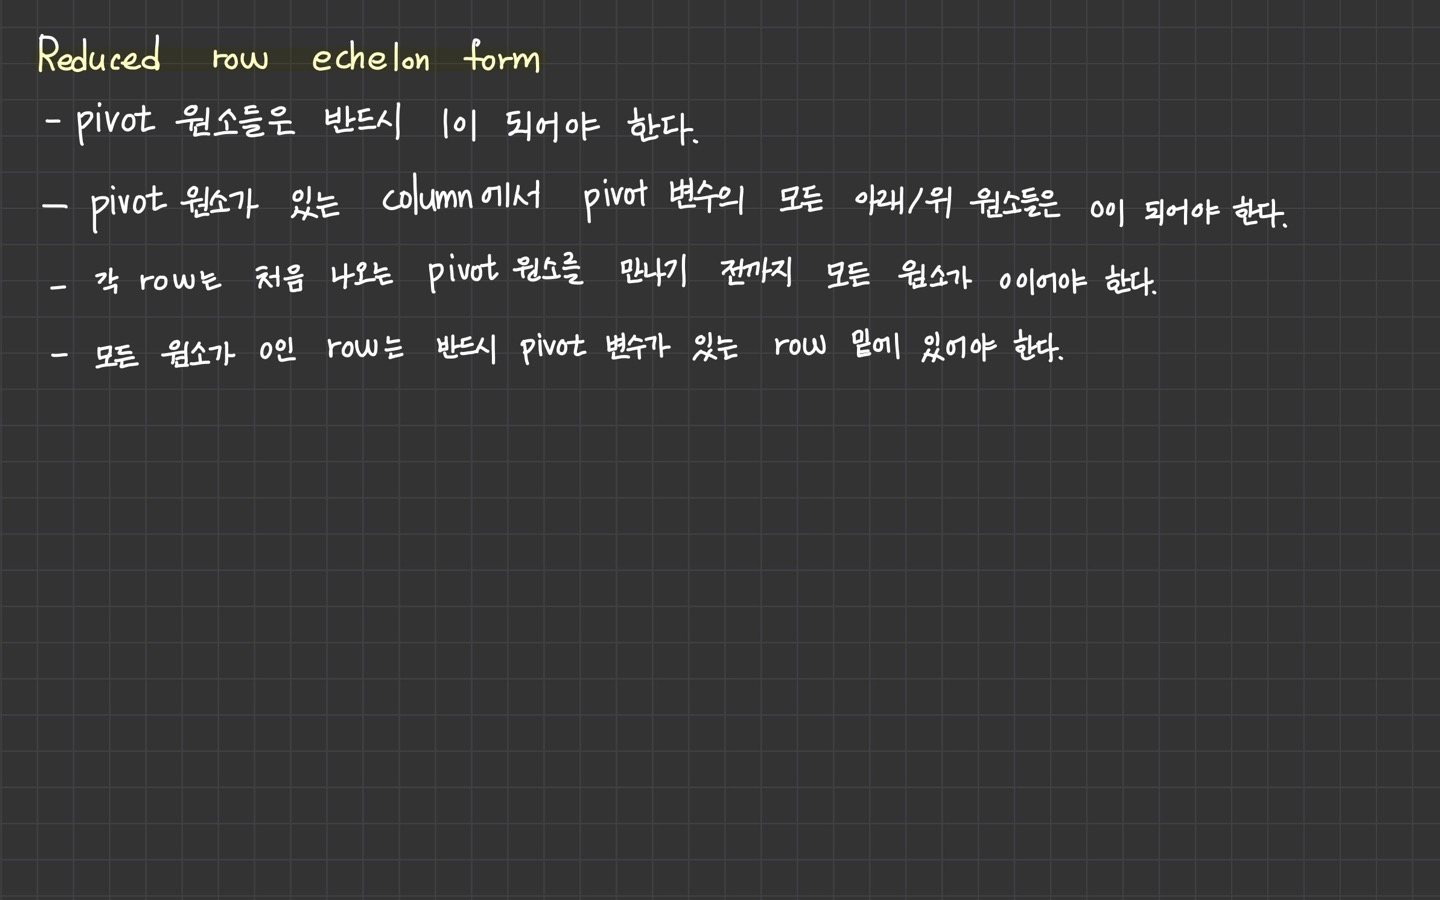 Reduced row echelon form
- pivot 원소들은 반드시 1이 되어야 한다.
- pivot 원소가 있는 column에서 pivot 변수의 모든 아래/위 원소들은 0이 되어야 한다.
- 각 row는 처음 나오는 pivot 원소를 만나기 전까지 모든 원소가 0이어야 한다.
- 모든 원소가 0인 row는 반드시 pivot 변수가 있는 row 밑에 있어야 한다.